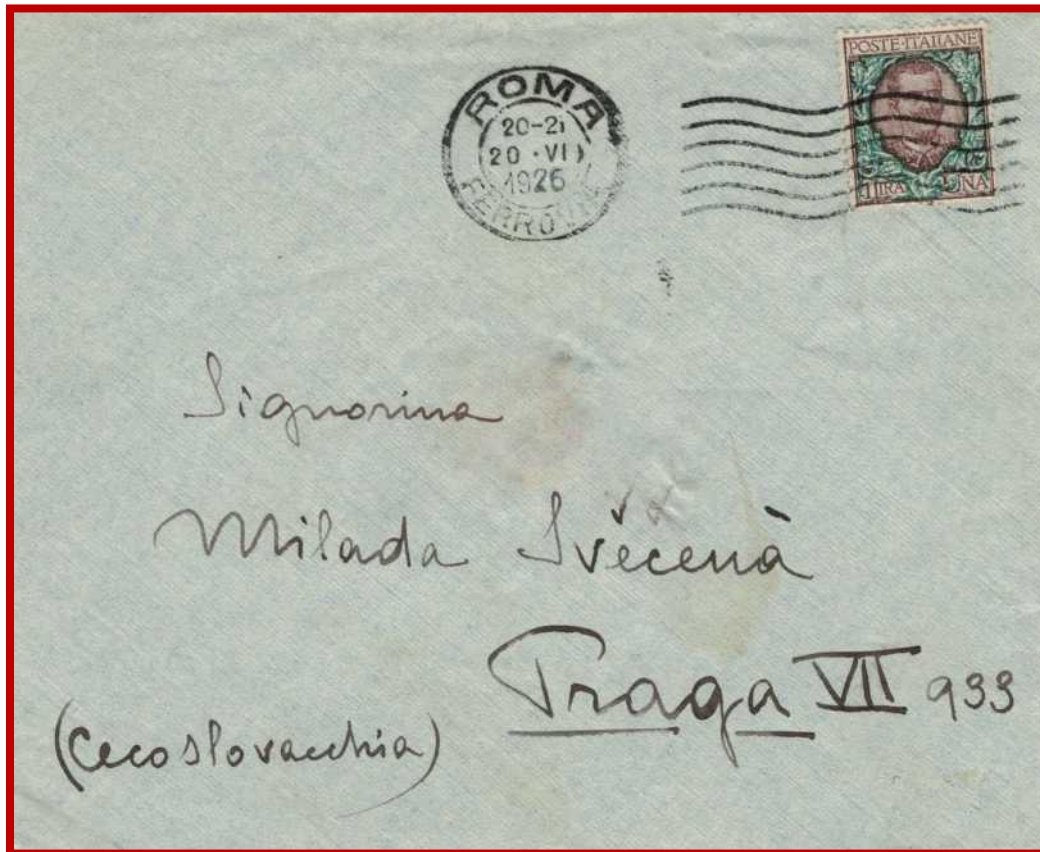 ROMA
20-21
20 · VI
1926
FERROVIA
POSTE·ITALIANE
1 LIRA UNA
Signorina
Milada Švecenà
Praga VII 933
(Cecoslovacchia)